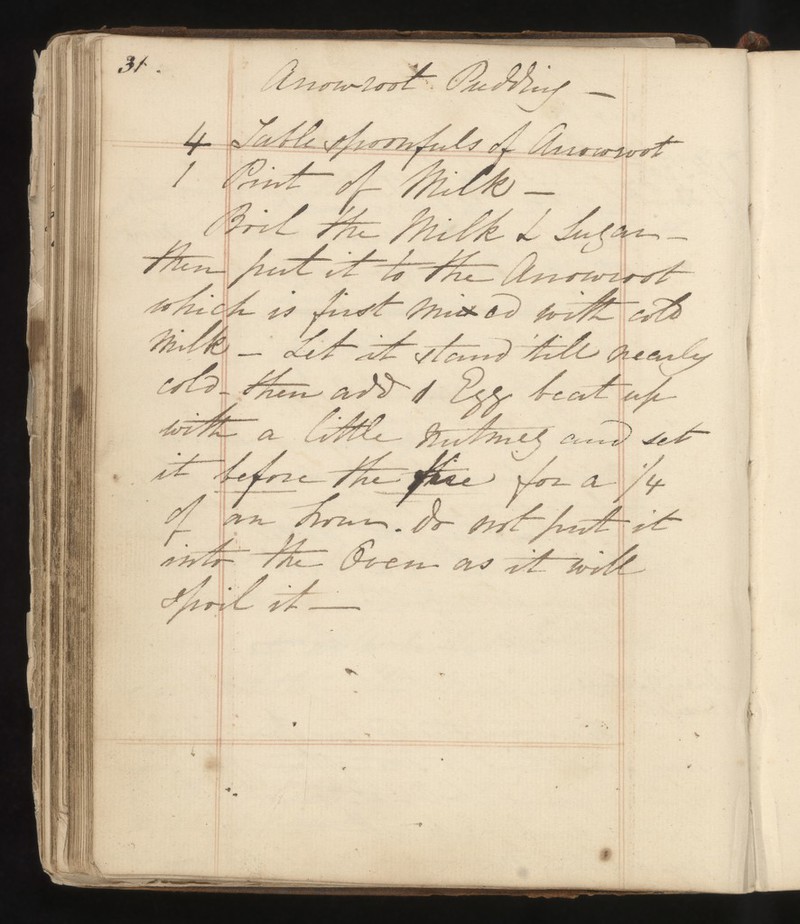 31.
Arrowroot Pudding —
4 Table spoonfuls of Arrowroot
1 Pint of Milk —
Boil the Milk & Sugar —
then put it to the Arrowroot
which is first mixed with cold
Milk — Let it stand 'till nearly
cold - then add 1 Egg beat up
with a little nutmeg and set
it before the fire for a 1/4
of an hour. Do not put it
into the Oven as it will
spoil it —